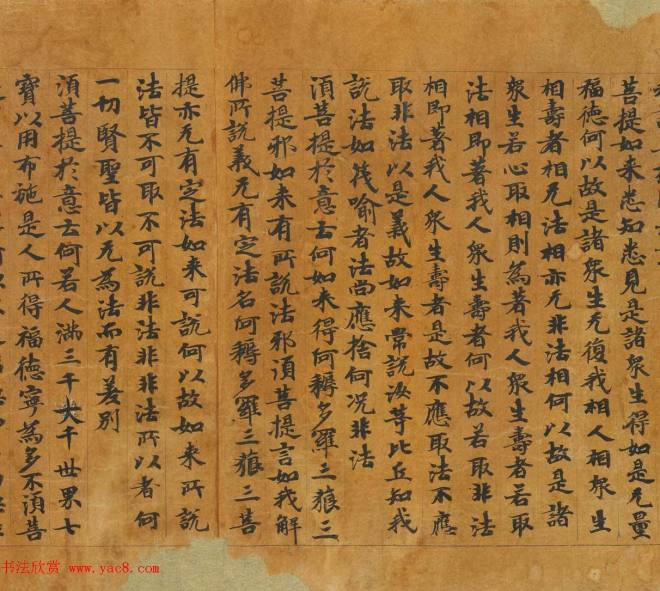 菩提如来悉知悉見是諸衆生得如是无量
福德何以故是諸衆生无復我相人相衆生
相壽者相无法相亦无非法相何以故是諸
衆生若心取相則為著我人衆生壽者若取
法相即著我人衆生壽者何以故若取非法
相即著我人衆生壽者是故不應取法不應
取非法以是義故如来常說汝等比丘知我
說法如筏喻者法尚應捨何況非法
須菩提於意云何如来得阿耨多羅三藐三
菩提耶如来有所說法耶須菩提言如我解
佛所說義无有定法名阿耨多羅三藐三菩
提亦无有定法如来可說何以故如来所說
法皆不可取不可說非法非非法所以者何
一切賢聖皆以无為法而有差別
須菩提於意云何若人滿三千大千世界七
寶以用布施是人所得福德寧為多不須菩
书法欣赏 www.yac8.com